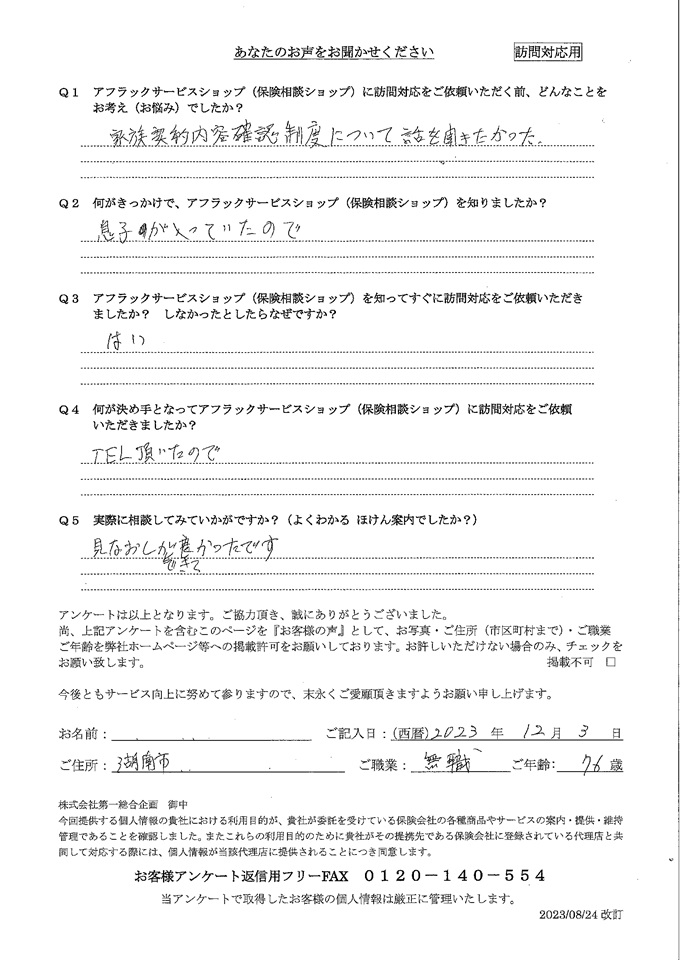 あなたのお声をお聞かせください
訪問対応用
Q1 アフラックサービスショップ（保険相談ショップ）に訪問対応をご依頼いただく前、どんなことを
お考え（お悩み）でしたか？
家族契約内容確認制度について話を聞きたかった。
Q2 何がきっかけで、アフラックサービスショップ（保険相談ショップ）を知りましたか？
息子が入っていたので
Q3 アフラックサービスショップ（保険相談ショップ）を知ってすぐに訪問対応をご依頼いただき
ましたか？ しなかったとしたらなぜですか？
はい
Q4 何が決め手となってアフラックサービスショップ（保険相談ショップ）に訪問対応をご依頼
いただきましたか？
TEL頂いたので
Q5 実際に相談してみていかがですか？（よくわかる ほけん案内でしたか？）
見なおしができて良かったです
アンケートは以上となります。ご協力頂き、誠にありがとうございました。
尚、上記アンケートを含むこのページを『お客様の声』として、お写真・ご住所（市区町村まで）・ご職業
ご年齢を弊社ホームページ等への掲載許可をお願いしております。お許しいただけない場合のみ、チェックを
お願い致します。 掲載不可 □
今後ともサービス向上に努めて参りますので、末永くご愛顧頂きますようお願い申し上げます。
お名前： ご記入日：(西暦)2023 年 12月 3 日
ご住所： 湖南市 ご職業： 無職 ご年齢： 76 歳
株式会社第一総合企画 御中
今回提供する個人情報の貴社における利用目的が、貴社が委託を受けている保険会社の各種商品やサービスの案内・提供・維持
管理であることを確認しました。またこれらの利用目的のために貴社がその提携先である保険会社に登録されている代理店と共
同して対応する際には、個人情報が当該代理店に提供されることにつき同意します。
お客様アンケート返信用フリーFAX 0120－140－554
当アンケートで取得したお客様の個人情報は厳正に管理いたします。
2023/08/24 改訂